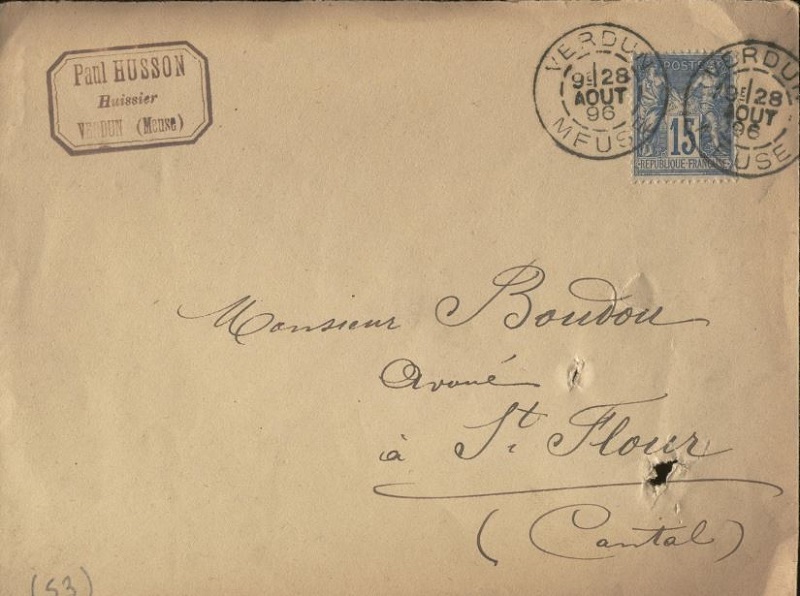 Paul HUSSON
Huissier
VERDUN (Meuse)
VERDUN
9E 28
AOUT
96
MEUSE
POSTES
15
REPUBLIQUE FRANCAISE
VERDUN
9E 28
AOUT
96
MEUSE
Monsieur Boudou
Avoué
à St Flour
(Cantal)
(53)